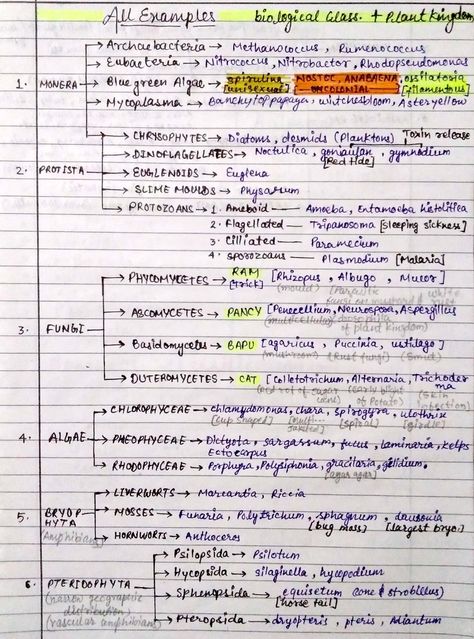 All Examples biological Class. + Plant Kingdom
1. MONERA
Archaebacteria → Methanococcus, Rumenococcus
Eubacteria → Nitrococcus, Nitrobactor, Rhodopseudomonas
Blue green Algae → spirulina [unisexual] [NOSTOC, ANABAENA ossilatoria [filamentous]
Mycoplasma → Banchytop papaya, witchesbloom, Asteryellow
2. PROTISTA
CHRYSOPHYTES → Diatoms, desmids (Planktons) Toxin release
DINOFLAGELLATES → Noctulica, goniaulan, gymnidium
[Red tide]
EUGLENOIDS → Euglena
SLIME MOULDS → Physarum
PROTOZOANS → 1. Ameboid — Amoeba, Entamoeba histolitica
2. Flagellated — Tripanosoma [sleeping sickness]
3. Cilliated — Paramecium
4. Sporozoans — Plasmodium [Malaria]
3. FUNGI
PHYCOMYCETES → RAM [Rhizopus, Albugo, Mucor]
[trick] (mould) (Parasitic fungi on mustard)
ASCOMYCETES → PANCY [Penecellium, Neurospora, Aspergillus
(multicellular) drosophila of plant kingdom)
Basidomycetes → BAPU [agarius, Puccinia, ustilago]
(mushroom) (Rust fungi) (Smut)
DUTEROMYCETES → CAT [Colletotrichum, Alternaria, Trichoderma
(red rot of sugar cane) (early blight of Potato) (skin infection)
4. ALGAE
CHLOROPHYCEAE → chlamydomonas, chara, spirogyra, ulothrix
[Cup shaped] (spiral) [girdle]
PHEOPHYCEAE → Dictyota, sargassum, fucus, laminaria, kelps
Ectocarpus
RHODOPHYCEAE → Porphyra, Polysiphonia, gracilaria, gelidium.
[agar agar]
5. BRYOPHYTA
(Amphibians)
LIVERWORTS → Marcantia, Riccia
MOSSES → Funaria, Polytrichum, sphagnum, dausonia
[bug moss] [largest bryo]
HORNWORTS → Anthoceros
6. PTERIDOPHYTA
(narrow geographic distribution)
(vascular amphibians)
Psilopsida → Psilotum
Hycopsida → silaginella, hycopodium
Sphenopsida → equisetum cone & strobillus]
[horse tail]
Pteropsida → dryopteris, pteris, Adiantum